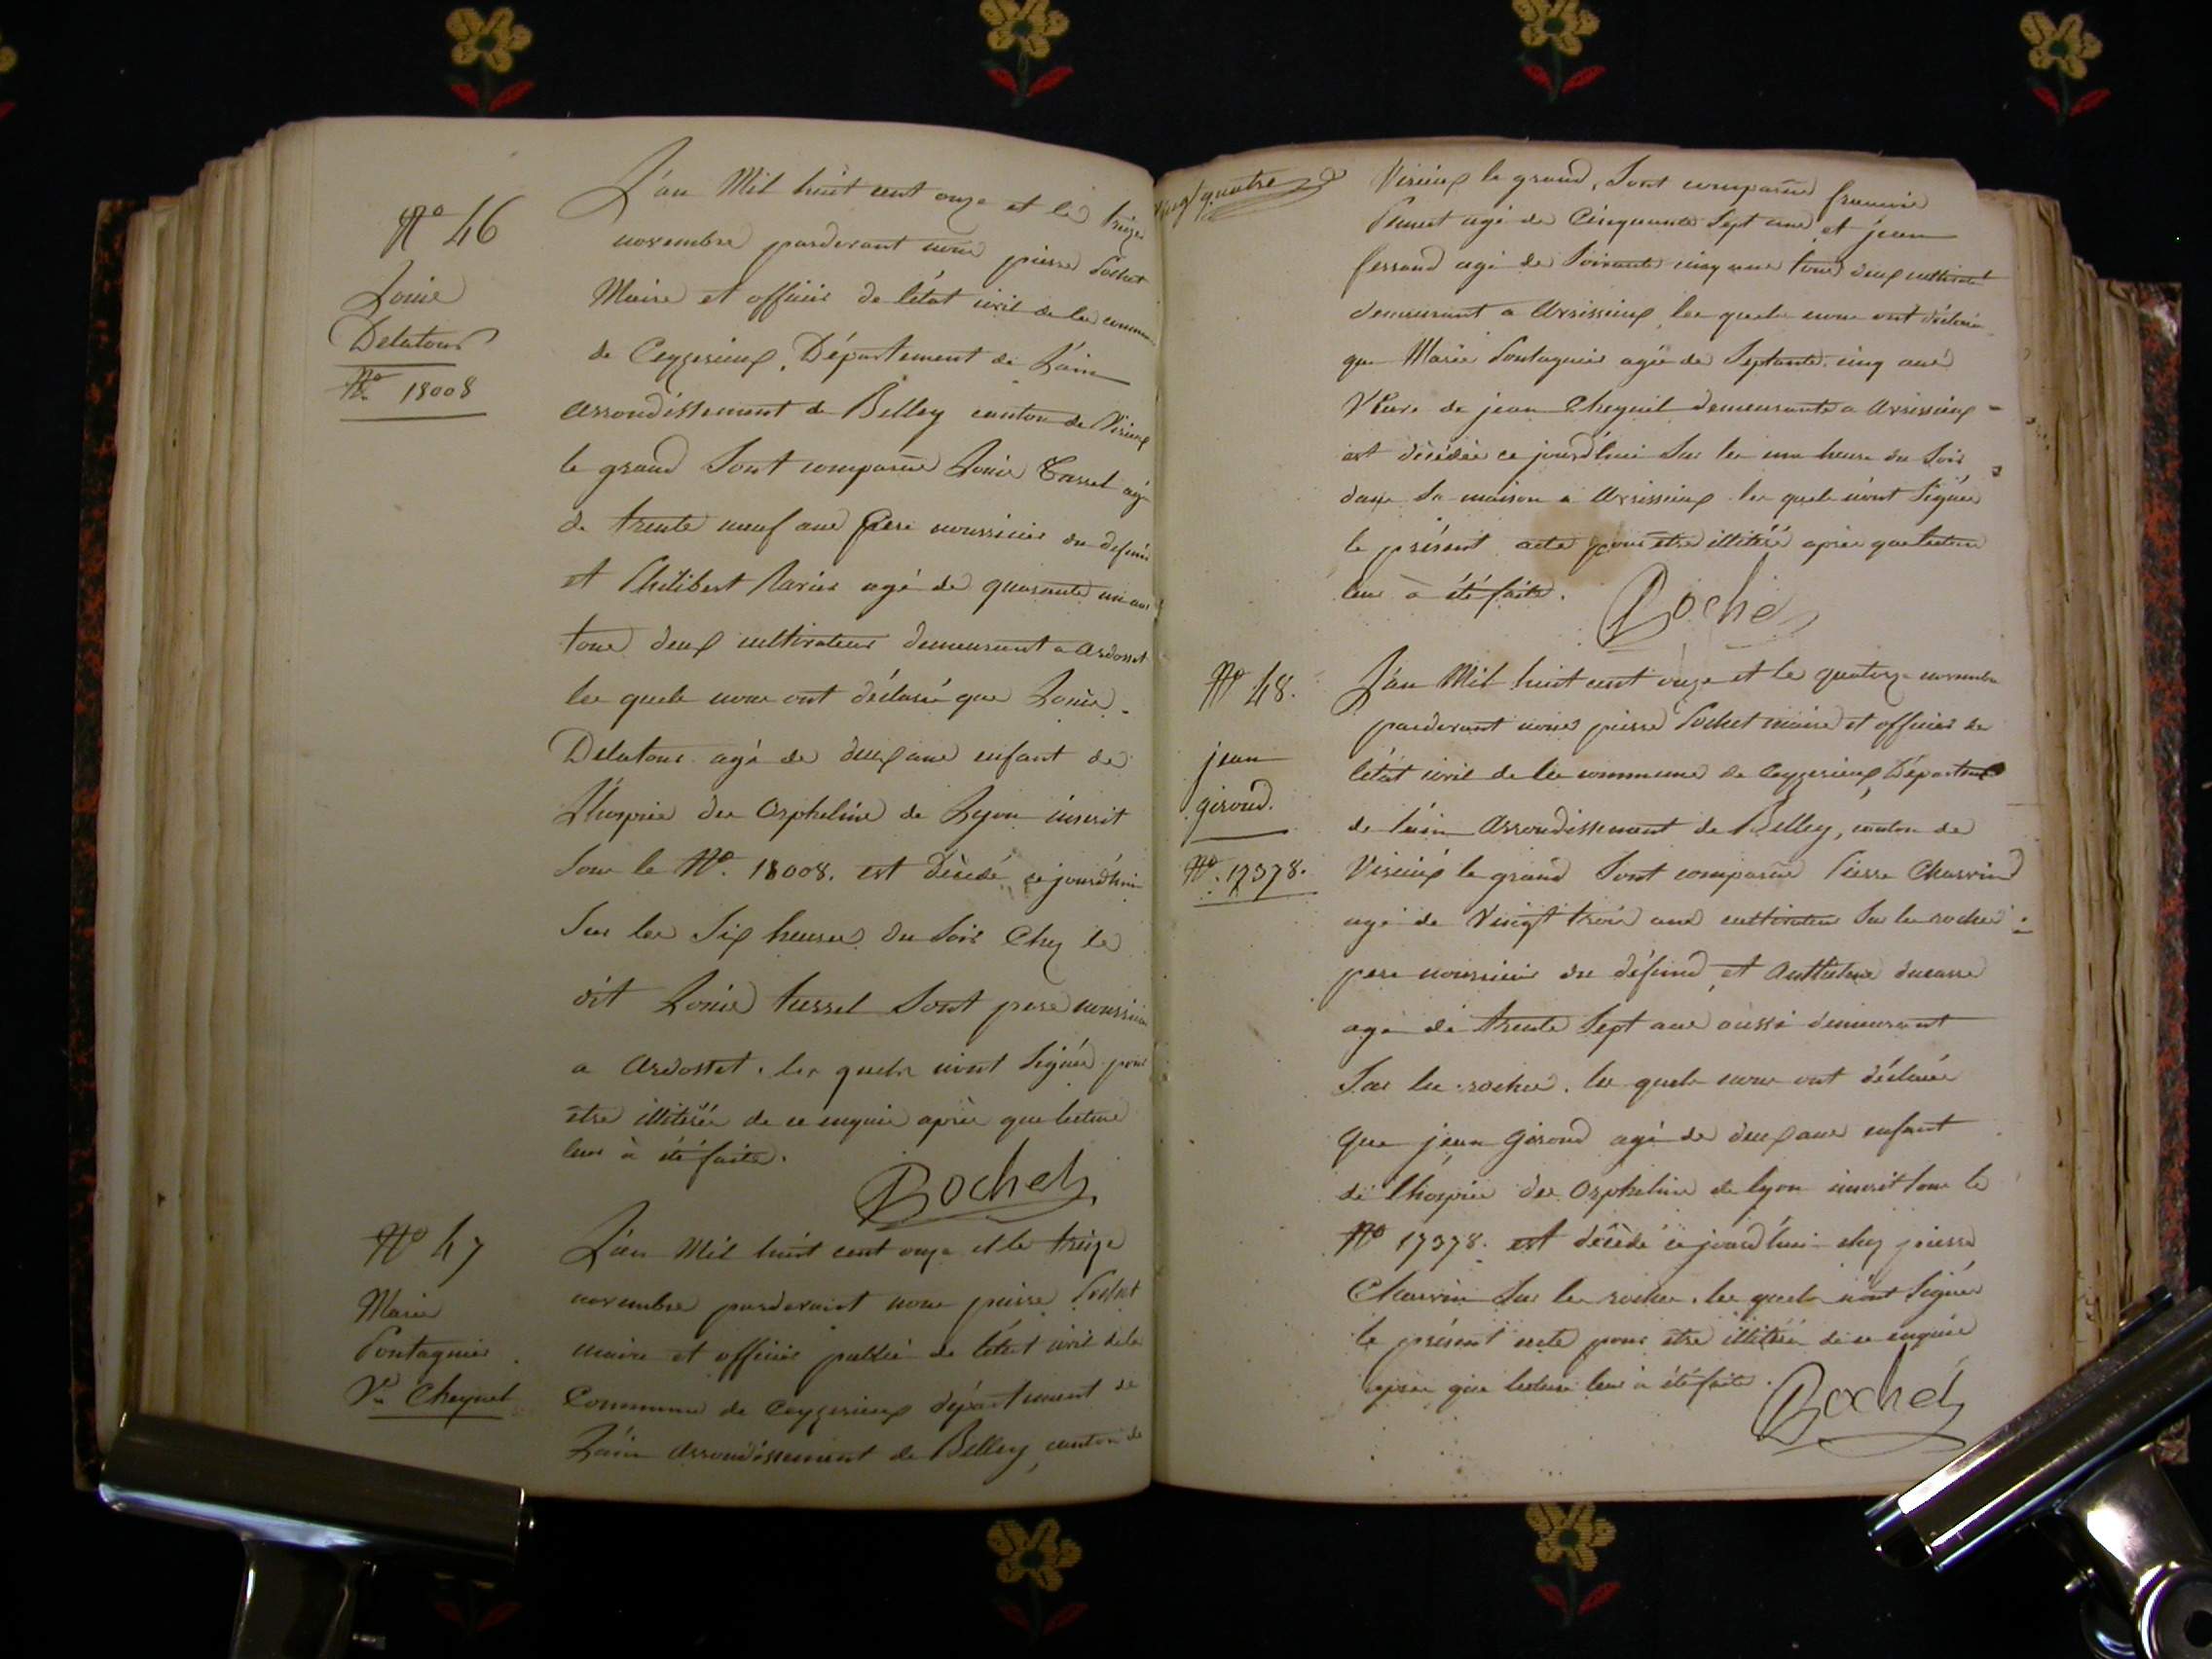 N° 46
Louis
Delatour
N° 18008
L'an Mil huit cent onze et le treize
novembre pardevant nous pierre Rochet
Maire et officier de l'état civil de la commune
de Ceyzerieux, Département de L'ain
arrondissement de Belley canton de Virieux
le grand Sont comparus Louis Tassel agé
de trente neuf ans pere nourricier du defunt
et Philibert agé de quarante un ans
tous deux cultivateurs demeurant a ardosset
les quels nous ont déclaré que Louis
Delatour agé de deux ans enfant de
L'hospice des Orphelins de Lyon inscrit
Sous le N°. 18008. est décédé ce jourd'hui
Sur les Six heures du Soir Chez le
dit Louis tassel Sont pere nourricier
a ardosset. les quels n'ont Signés pour
etre illitérés de ce enquis après que lecture
leur à été faite.
Rochet
N° 47
Marie
Pontagnier
Ve Cheynel
L'an Mil huit cent onze et le treize
novembre pardevant nous pierre Rochet
maire et officier public de l'état civil de la
Commune de Ceyzerieux département de
L'ain arrondissement de Belley, canton de
vingt quatre
Virieux le grand, Sont comparus francois
agé de Cinquante Sept ans et jean
ferrand agé de Soixante cinq ans tous deux cultivat
demeurant a Avrissieux les quels nous ont déclaré
que Marie Pontagnier agée de Septante cinq ans
Veuve de jean Cheynel demeurante a Avrissieux
est décédée ce jourd'hui Sur les une heure du Soir
dans Sa maison a Avrissieux les quels n'ont Signés
le présent acte pour etre illitérés après que lecture
leur à été faite.
Rochet
N° 48.
jean
girond.
N°. 17378.
L'an Mil huit cent onze et le quatorze novembre
pardevant nous pierre Rochet maire et officier de
l'état civil de la commune de Ceyzerieux, Départem
de l'ain arrondissement de Belley, canton de
Virieux le grand Sont comparus Pierre Charvin
agé de Vingt trois ans cultivateur Sur les rocher
pere nourricier du défunt, et Anthelme ducarre
agé de trente Sept ans aussi demeurant
Sur les rocher. les quels nous ont déclarés
que jean Girond agé de deux ans enfant
de l'hospice des Orphelins de lyon inscrit sous le
N° 17378. est décédé ce jourd'hui chez pierre
Charvin Sur les rocher. les quels n'ont Signés
le présent acte pour etre illitérés de ce enquis
après que lecture leur à été faite.
Rochet